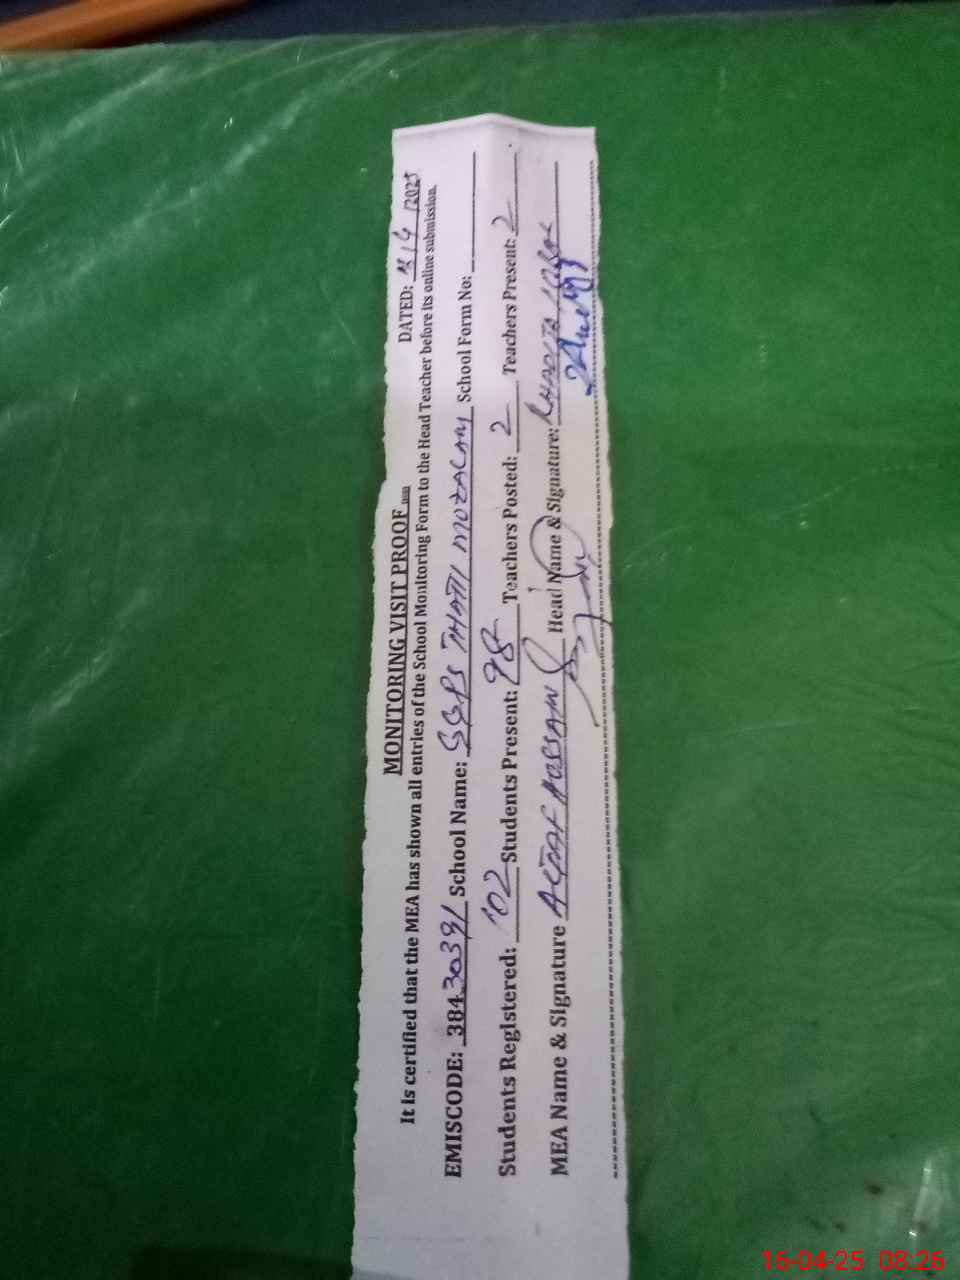 MONITORING VISIT PROOF
DATED: /4/2025
It is certified that the MEA has shown all entries of the School Monitoring Form to the Head Teacher before its online submission.
EMISCODE: 38430391 School Name: GGPS THATTI MOZALAM School Form No:
Students Registered: 102 Students Present: 98 Teachers Posted: 2 Teachers Present: 2
MEA Name & Signature ALTAF HUSSAIN Head Name & Signature:
16-04-25 08:26